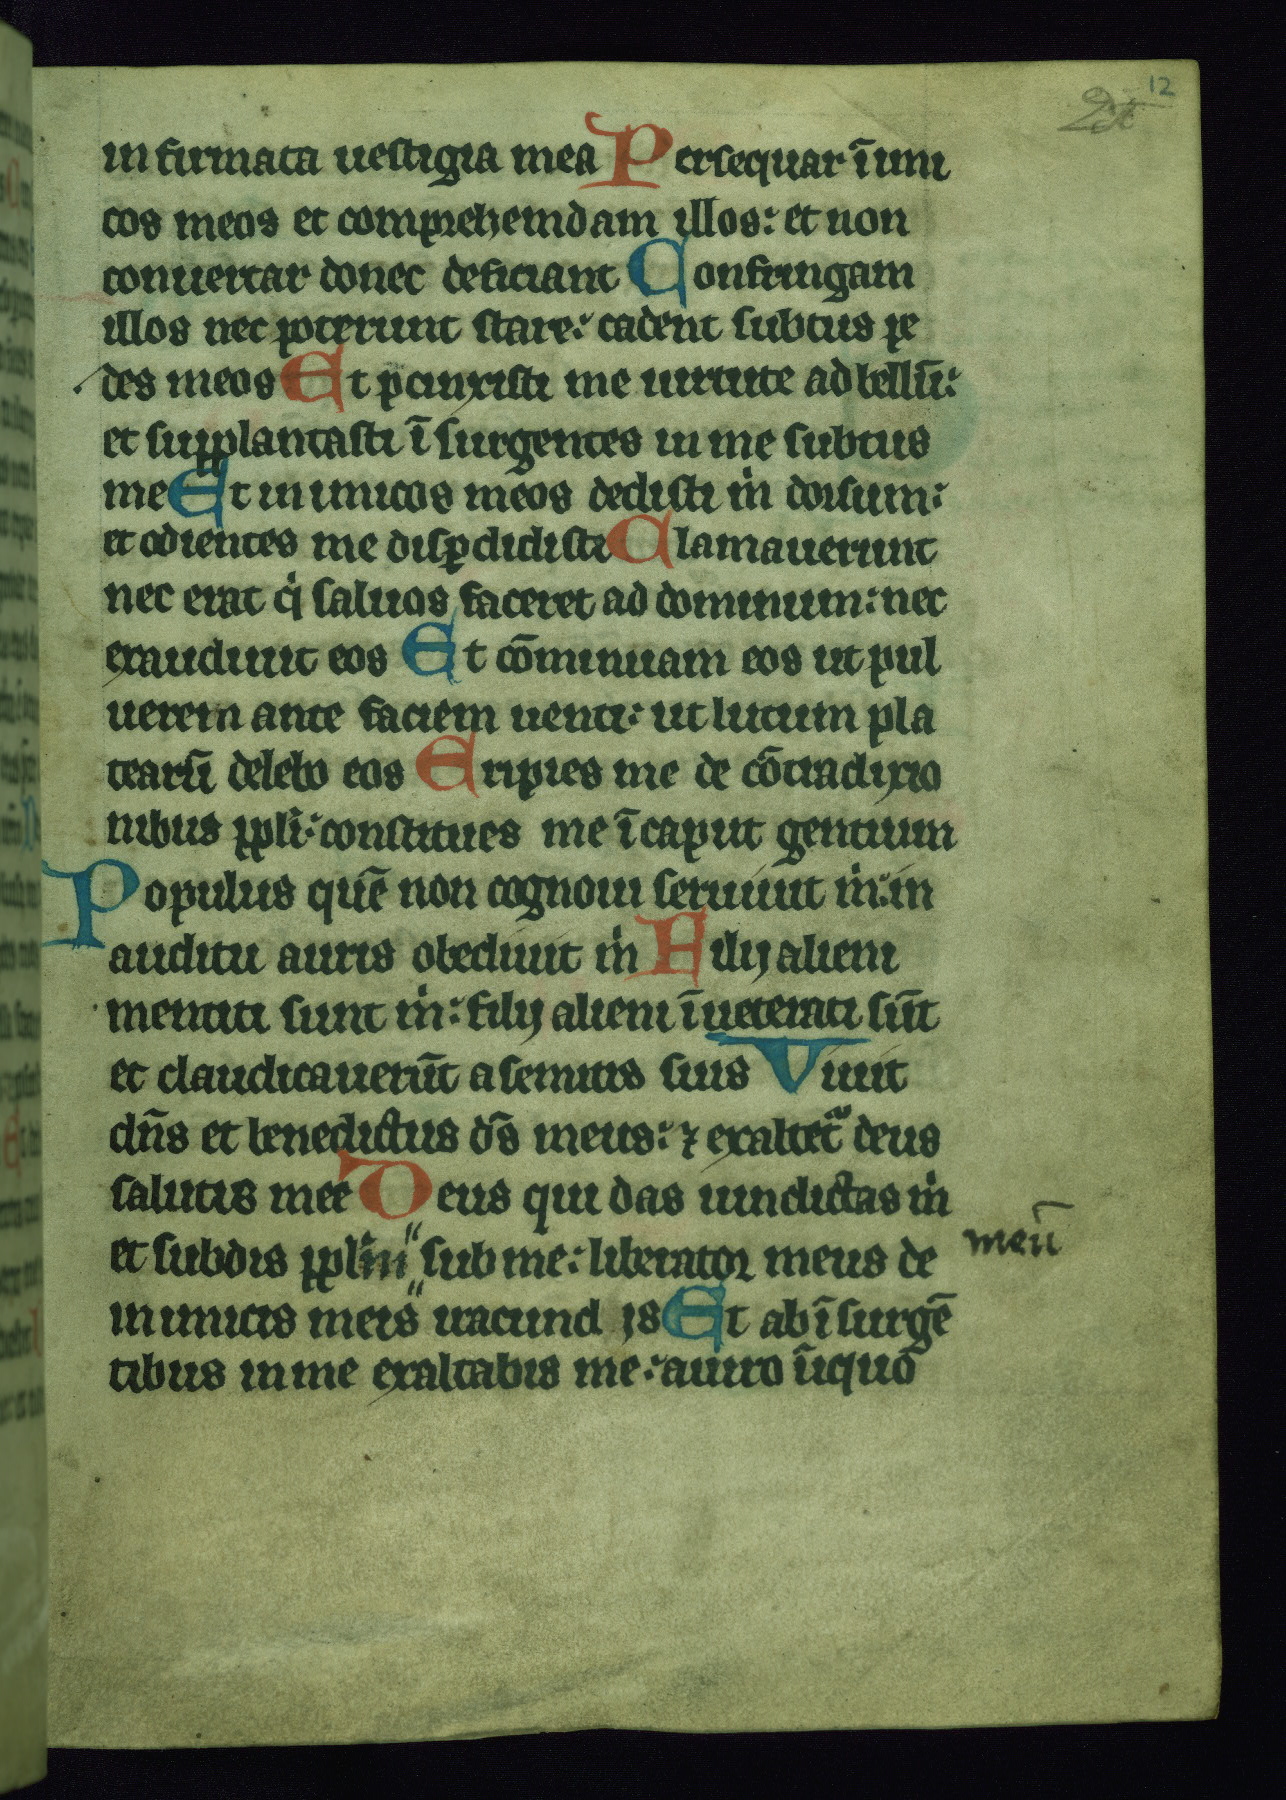 12
infirmata uestigia mea Persequar īimi
cos meos et comprehemdam illos: et non
conuertar donec deficiant Confringam
illos nec poterunt stare: cadent subtus pe
des meos Et p̄cinxisti me uirtute ad bellū:
et supplantasti ī surgentes in me subtus
me Et inimicos meos dedisti m̄ dorsum:
et odientes me disp̄didisti Clamauerunt
nec erat q̇ saluos faceret ad dominum: nec
exaudiuit eos Et cōminuam eos ut pul
uerem ante faciem uenti: ut lutum pla
tearū delebo eos Eripies me de cōtradixio
nibus ppli: constitues me ī caput gentium
Populus quē non cognoui seruiuit m̄: in
auditu auris obediuit m̄ Filij alieni
mentiti sunt m̄: filij alieni īueterati sūt
et claudicauerūt a semitis suis Viuit
dn̄s et benedictus ds̄ meus: ⁊ exaltet᷑ deus
salutis mee Deus qui das uindictas m̄
et subdis pplm̄ sub me: liberator meus de
meū
inimicis meis iracund is Et ab īsurgē
tibus in me exaltabis me: a uiro īiquo